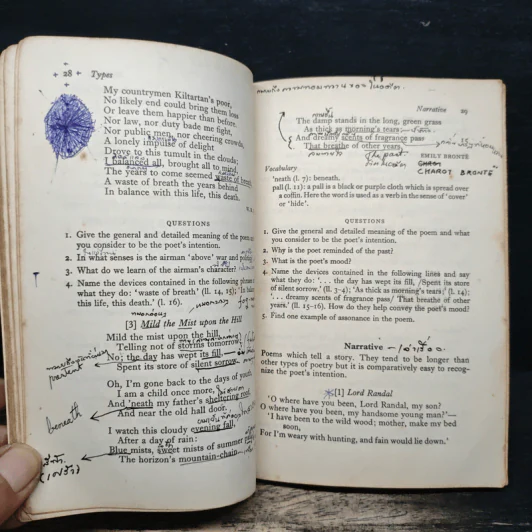 28 Types
My countrymen Kiltartan's poor,
No likely end could bring them loss
Or leave them happier than before.
Nor law, nor duty bade me fight,
Nor public men, nor cheering crowds,
A lonely impulse of delight
Drove to this tumult in the clouds;
I balanced all, brought all to mind,
The years to come seemed waste of breath,
A waste of breath the years behind
In balance with this life, this death.
QUESTIONS
1. Give the general and detailed meaning of the poem
you consider to be the poet's intention.
2. In what senses is the airman 'above' war and
3. What do we learn of the airman's character?
4. Name the devices contained in the following phrases
what they do: 'waste of breath' (ll. 14, 15);
this life, this death.' (l. 16).
[3] Mild the Mist upon the Hill
Mild the mist upon the hill,
Telling not of storms tomorrow;
No; the day has wept its fill,
Spent its store of silent sorrow.
present
Oh, I'm gone back to the days of youth,
I am a child once more,
And 'neath my father's sheltering roof,
And near the old hall door.
beneath
I watch this cloudy evening fall,
After a day of rain:
Blue mists, sweet mists of summer
The horizon's mountain-chain
Narrative 29
The damp stands in the long, green grass
As thick as morning's tears
And dreamy scents of fragrance pass
That breathe of other years.
The past
EMILY BRONTË
CHAROT BRONTË
Vocabulary
'neath (l. 7): beneath.
pall (l. 11): a pall is a black or purple cloth which is spread over
a coffin. Here the word is used as a verb in the sense of 'cover'
or 'hide'.
QUESTIONS
1. Give the general and detailed meaning of the poem and what
you consider to be the poet's intention.
2. Why is the poet reminded of the past?
3. What is the poet's mood?
4. Name the devices contained in the following lines and say
what they do: '. . . the day has wept its fill, /Spent its store
of silent sorrow.' (ll. 3-4); 'As thick as morning's tears' (l. 14);
'. . . dreamy scents of fragrance pass/ That breathe of other
years.' (ll. 15-16). How do they help convey the poet's mood?
5. Find one example of assonance in the poem.
Narrative
Poems which tell a story. They tend to be longer
than other types of poetry but it is comparatively easy to recog-
nize the poet's intention.
[1] Lord Randal
'O where have you been, Lord Randal, my son?
O where have you been, my handsome young man?'—
'I have been to the wild wood; mother, make my bed
soon,
For I'm weary with hunting, and fain would lie down.'